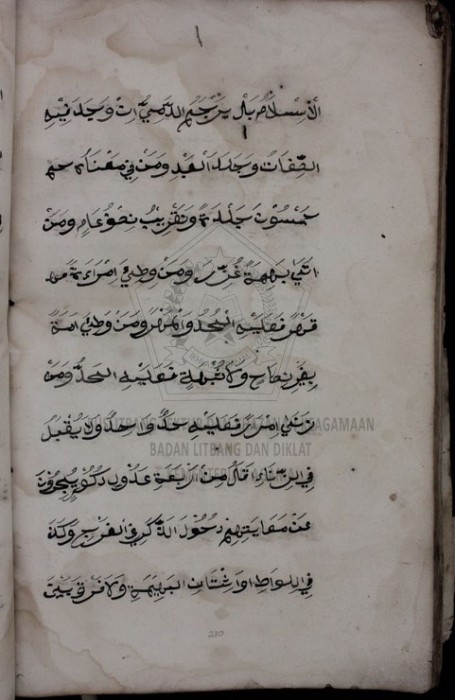 الاسلام بل يرجم الذمي ان وجد فيه
الصفات وجلد العبد ومن في معناه حد
خمسون جلدة وتغريب نصف عام ومن
اتى بهيمة عزر ومن وطئ امراة
قهرا فعليه الحد والمهر ومن وطئ امة
بغير نكاح ولا شبهة فعليه الحد ومن
زنى مرارا فعليه حد واحد ولا يقبل
في الزناء اقل من ربعة عدول ذكور يخبرون
عن معاينتهم دخول الذكر في الفرج وكذا
في اللواط او اتيان البهيمة ولا فرق بين
AGAMAAN
BADAN LITBANG DAN DIKLAT
210